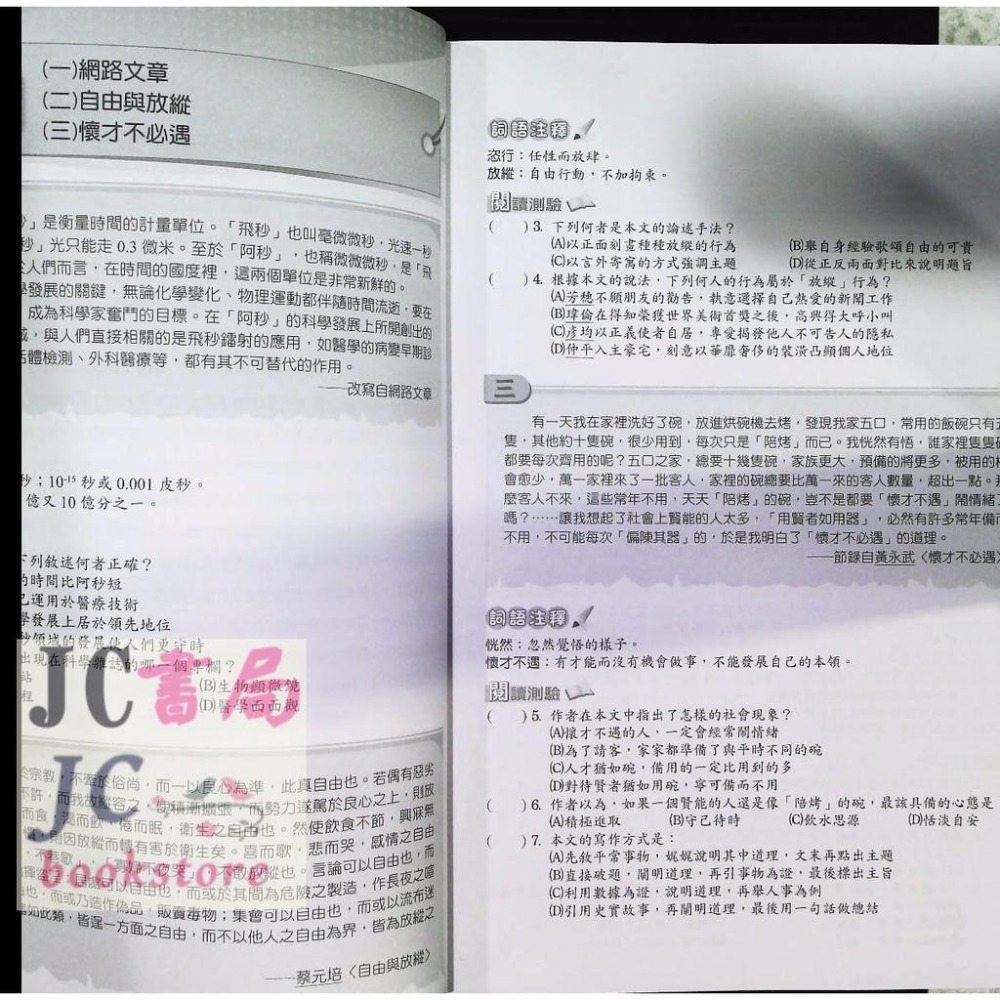 (一)網路文章
(二)自由與放縱
(三)懷才不必遇
」是衡量時間的計量單位。「飛秒」也叫毫微微秒,光速一秒
秒」光只能走 0.3 微米。至於「阿秒」,也稱微微微秒,是「飛
人們而言,在時間的國度裡,這兩個單位是非常新鮮的。
學發展的關鍵,無論化學變化、物理運動都伴隨時間流逝,要在
成為科學家奮鬥的目標。在「阿秒」的科學發展上所開創出的
,與人們直接相關的是飛秒鐳射的應用,如醫學的病變早期診
活體檢測、外科醫療等,都有其不可替代的作用。
——改寫自網路文章
秒;10⁻¹⁵ 秒或 0.001 皮秒。
億又 10 億分之一。
下列敘述何者正確?
的時間比阿秒短
已運用於醫療技術
學發展上居於領先地位
秒領域的發展使人們更守時
出現在科學雜誌的哪一個專欄?
站 (B)生物顯微鏡
程 (D)醫學面面觀
JC書局
JC
bookstore
於宗教,不窒於俗尚,而一以良心為準,此真自由也。若偶有惡劣
不許,而我故縱容之,使積漸擴張,而勢力遂駕於良心之上,則放
而食,渴而飲,倦而眠,衛生之自由也。然使飲食不節,興寐無
,則因放縱而轉有害於衛生矣。喜而歌,悲而哭,感情之自由
不巷歌,寡婦不夜哭」,不敢放縱也。言論可以自由也,而
可以自由也,而或於其間為危險之製造,作長夜之喧
也,而或乃造作偽品,販賣毒物;集會可以自由也,而或以流布迷
如此類,皆逞一方面之自由,而不以他人之自由為界,皆為放縱之
——蔡元培〈自由與放縱〉
詞語注釋
恣行:任性而放肆。
放縱:自由行動,不加拘束。
閱讀測驗
( )3. 下列何者是本文的論述手法?
(A)以正面刻畫種種放縱的行為 (B)舉自身經驗歌頌自由的可貴
(C)以言外寄寓的方式強調主題 (D)從正反兩面對比來說明題旨
( )4. 根據本文的說法,下列何人的行為屬於「放縱」行為?
(A)芳穗不顧朋友的勸告,執意選擇自己熱愛的新聞工作
(B)瑋倫在得知榮獲世界美術首獎之後,高興得大呼小叫
(C)彥均以正義使者自居,專愛揭發他人不可告人的隱私
(D)仲平入主豪宅,刻意以華靡奢侈的裝潢凸顯個人地位
三
有一天我在家裡洗好了碗,放進烘碗機去烤,發現我家五口,常用的飯碗只有五
隻,其他約十隻碗,很少用到,每次只是「陪烤」而已。我恍然有悟,誰家裡隻隻碗
都要每次齊用的呢?五口之家,總要十幾隻碗,家族更大,預備的將更多,被用的機
會愈少,萬一家裡來了一批客人,家裡的碗總要比萬一來的客人數量,超出一點。那
麼客人不來,這些常年不用,天天「陪烤」的碗,豈不是都要「懷才不遇」鬧情緒了
嗎?……讓我想起了社會上賢能的人太多,「用賢者如用器」,必然有許多常年備而
不用,不可能每次「偏陳其器」的,於是我明白了「懷才不必遇」的道理。
——節錄自黃永武〈懷才不必遇〉
詞語注釋
恍然:忽然覺悟的樣子。
懷才不遇:有才能而沒有機會做事,不能發展自己的本領。
閱讀測驗
( )5. 作者在本文中指出了怎樣的社會現象?
(A)懷才不遇的人,一定會經常鬧情緒
(B)為了請客,家家都準備了與平時不同的碗
(C)人才猶如碗,備用的一定比用到的多
(D)對待賢者猶如用碗,寧可備而不用
( )6. 作者以為,如果一個賢能的人還是像「陪烤」的碗,最該具備的心態是
(A)積極進取 (B)守己待時 (C)飲水思源 (D)恬淡自安
( )7. 本文的寫作方式是:
(A)先敘平常事物,娓娓說明其中道理,文末再點出主題
(B)直接破題,闡明道理,再引事物為證,最後標出主旨
(C)利用數據為證,說明道理,再舉人事為例
(D)引用史實故事,再闡明道理,最後用一句話做總結